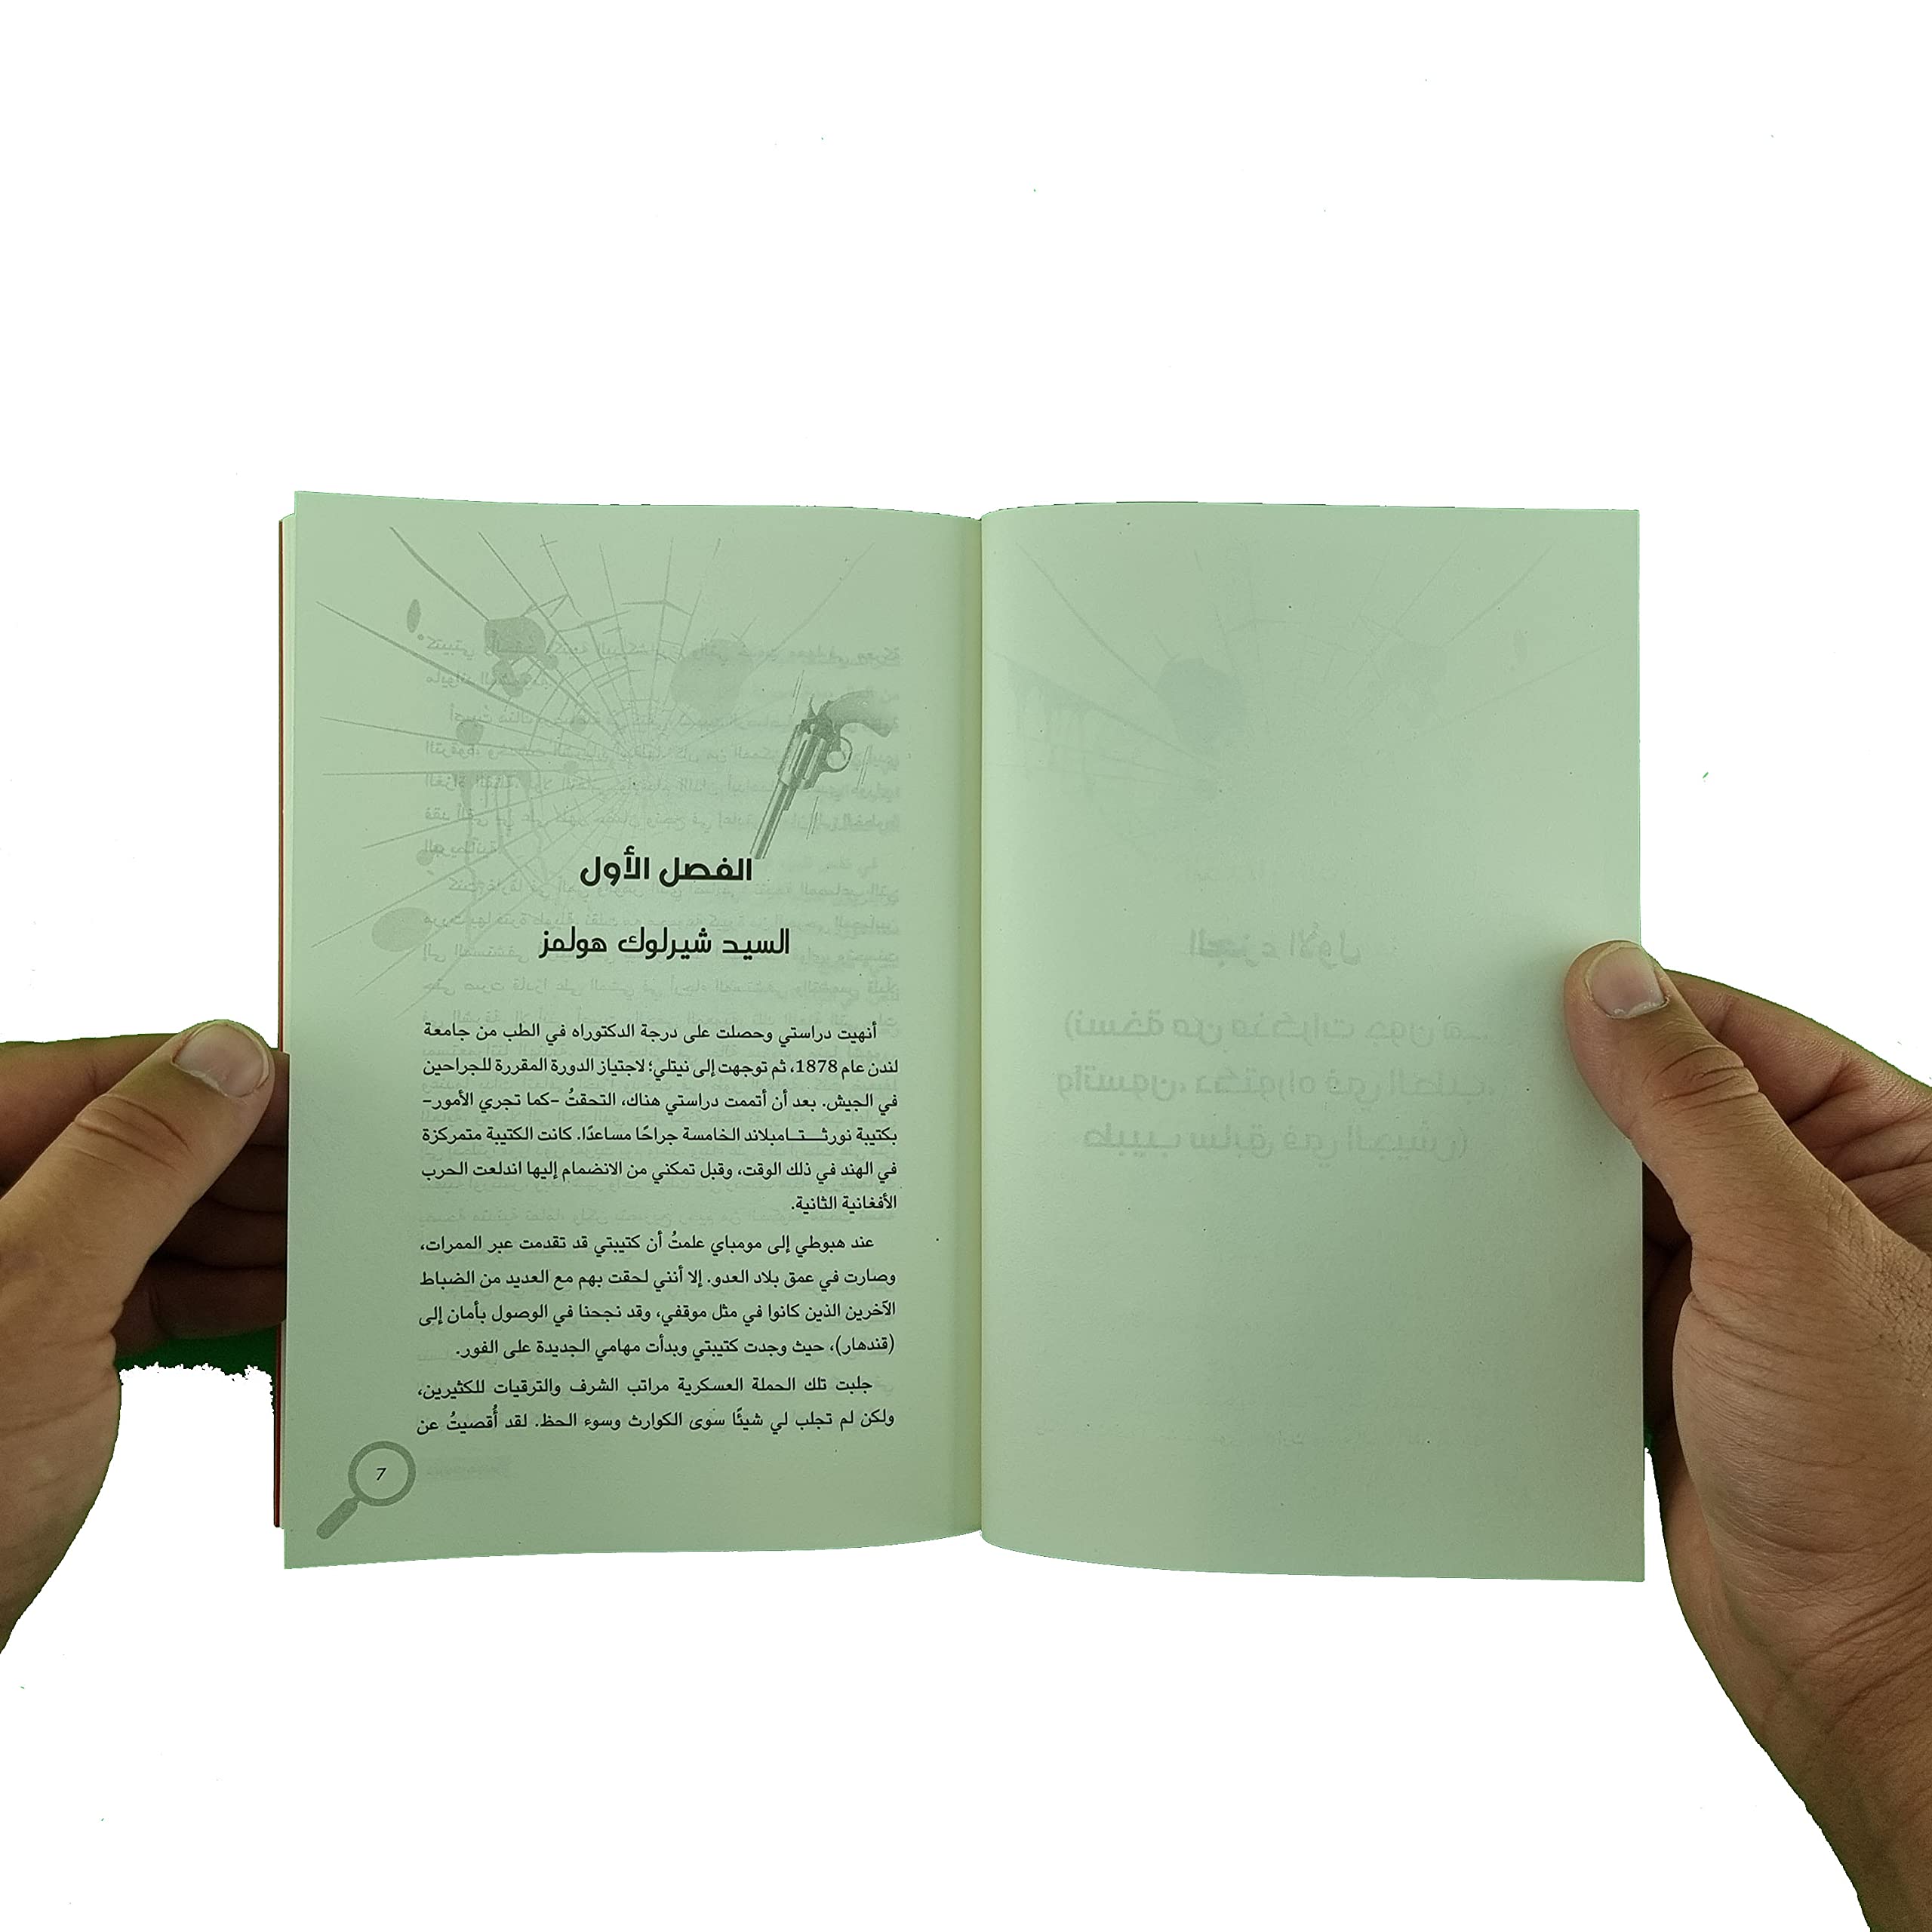 الفصل الأول
السيد شيرلوك هولمز
أنهيت دراستي وحصلت على درجة الدكتوراه في الطب من جامعة
لندن عام 1878، ثم توجهت إلى نيتلي؛ لاجتياز الدورة المقررة للجراحين
في الجيش. بعد أن أتممت دراستي هناك، التحقتُ –كما تجري الأمور–
بكتيبة نورثـــتـــامبلاند الخامسة جراحًا مساعدًا. كانت الكتيبة متمركزة
في الهند في ذلك الوقت، وقبل تمكني من الانضمام إليها اندلعت الحرب
الأفغانية الثانية.
عند هبوطي إلى مومباي علمتُ أن كتيبتي قد تقدمت عبر الممرات،
وصارت في عمق بلاد العدو. إلا أنني لحقت بهم مع العديد من الضباط
الآخرين الذين كانوا في مثل موقفي، وقد نجحنا في الوصول بأمان إلى
(قندهار)، حيث وجدت كتيبتي وبدأت مهامي الجديدة على الفور.
جلبت تلك الحملة العسكرية مراتب الشرف والترقيات للكثيرين،
ولكن لم تجلب لي شيئًا سوى الكوارث وسوء الحظ. لقد أُقصيتُ عن
7